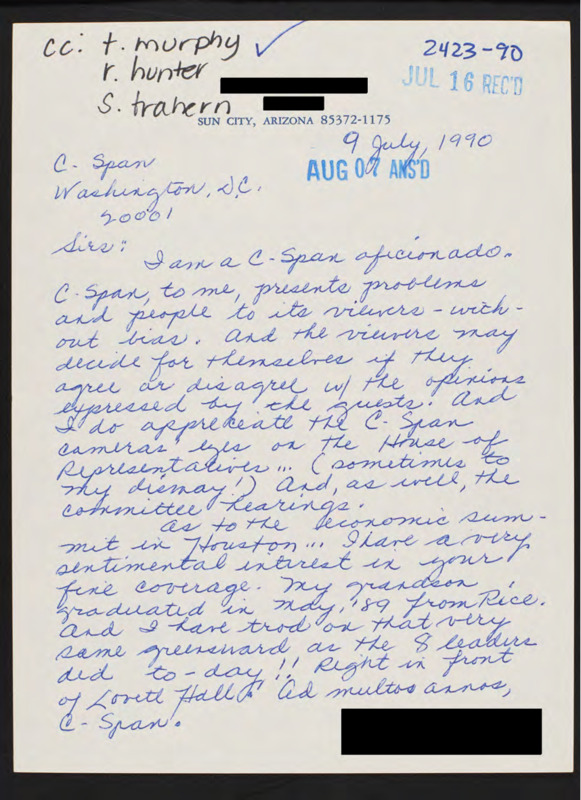 cc: t. murphy
r. hunter
s. trahern
2423-90
JUL 16 REC'D
SUN CITY, ARIZONA 85372-1175
9 July, 1990
AUG 07 ANS'D
C-Span
Washington, D.C.
20001
Sirs:
I am a C-Span aficionado.
C-Span, to me, presents problems
and people to its viewers - with-
out bias. And the viewers may
decide for themselves if they
agree or disagree w/ the opinions
expressed by the guests. And
I do appreciate the C-Span
cameras eyes on the House of
Representatives... (sometimes to
my dismay!) And, as well, the
committee hearings.
As to the economic sum-
mit in Houston... I have a very
sentimental interest in your
fine coverage. My grandson
graduated in May, '89 from Rice.
And I have trod on that very
same greensward as the 8 leaders
did to-day!! Right in front
of Lovett Hall! Ad multos annos,
C-Span.